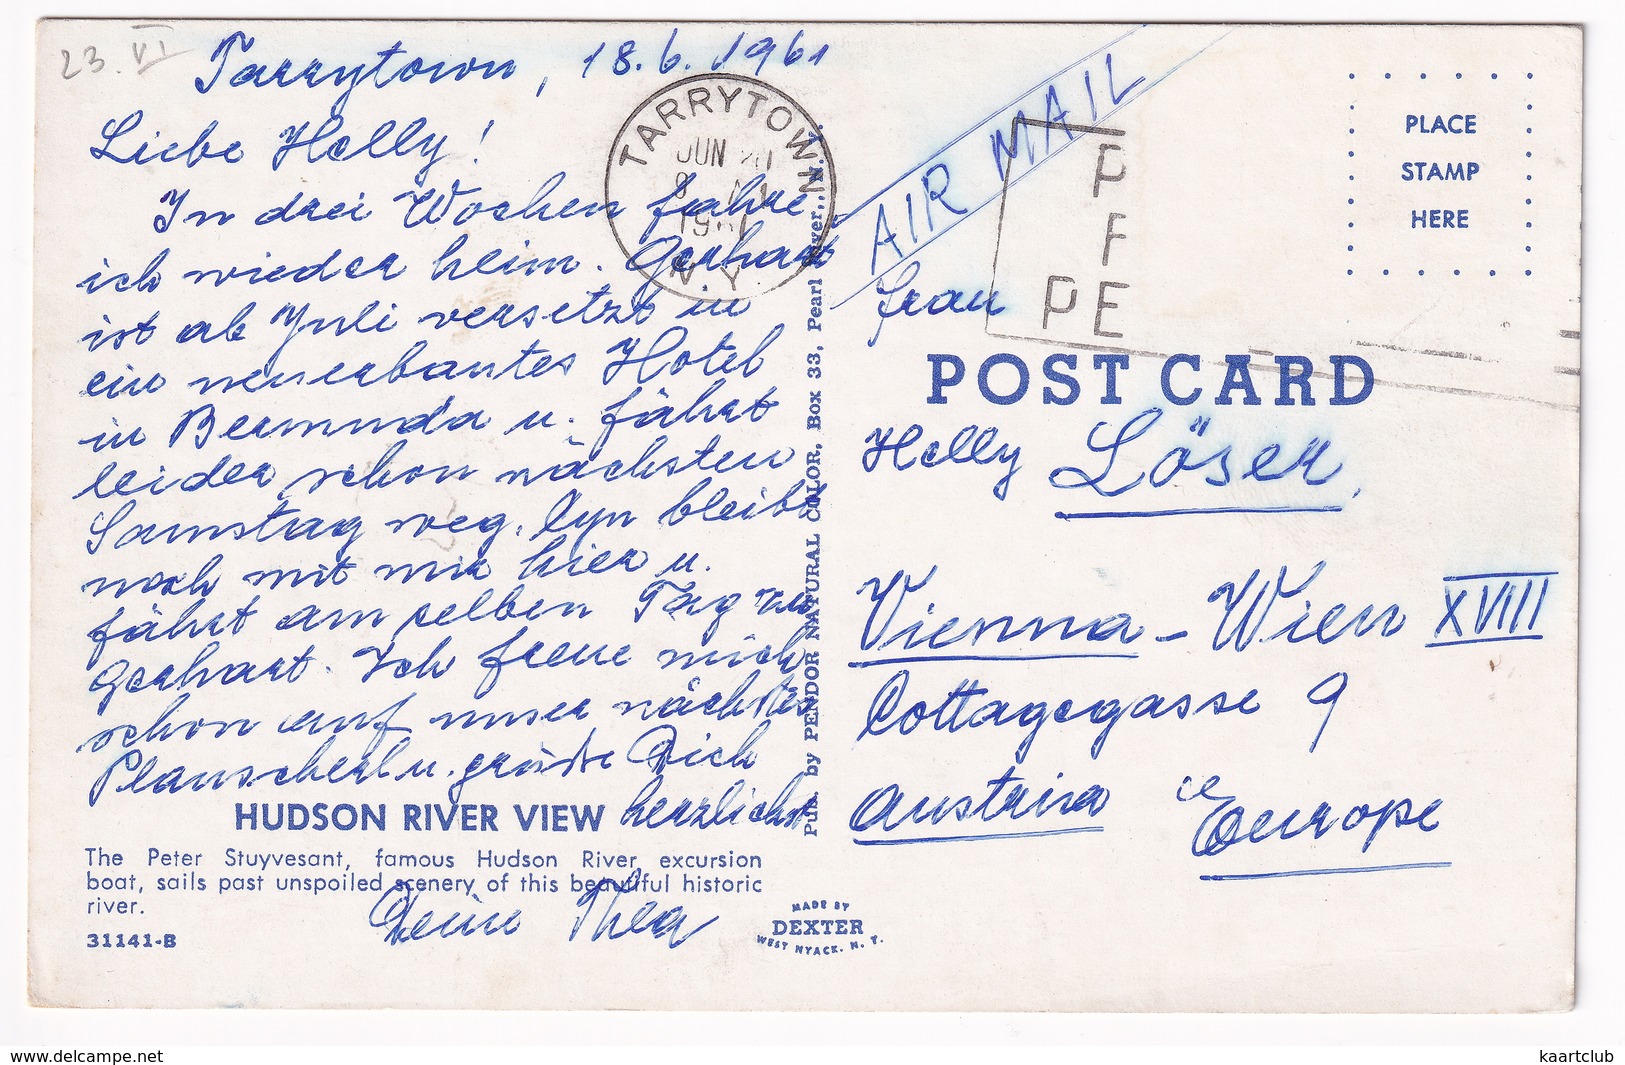 23. VI
Tarrytown, 18.6.1961
Liebe Helly!
In drei Wochen fahre
ich wieder heim. Gerhart
ist ab Juli versetzt in
ein neuerbautes Hotel
in Bermuda u. fährt
leider schon nächsten
Samstag weg. Lyn bleibt
noch mit mir hier u.
fährt am selben Tag zu
Gerhart. Ich freue mich
schon auf unser nächstes
Plauscherl u. grüße Dich
herzlichst
Deine Thea
HUDSON RIVER VIEW
The Peter Stuyvesant, famous Hudson River excursion
boat, sails past unspoiled scenery of this beautiful historic
river.
31141-B
TARRYTOWN
JUN
N.Y.
Pub. by PENDOR NATURAL COLOR, Box 33, Pearl River, N. Y.
MADE BY
DEXTER
WEST NYACK, N. Y.
AIR MAIL
P
F
PE
PLACE
STAMP
HERE
Frau
POST CARD
Helly Löser,
Vienna - Wien XVIII
Cottagegasse 9
Austria Europe
www.delcampe.net
kaartclub